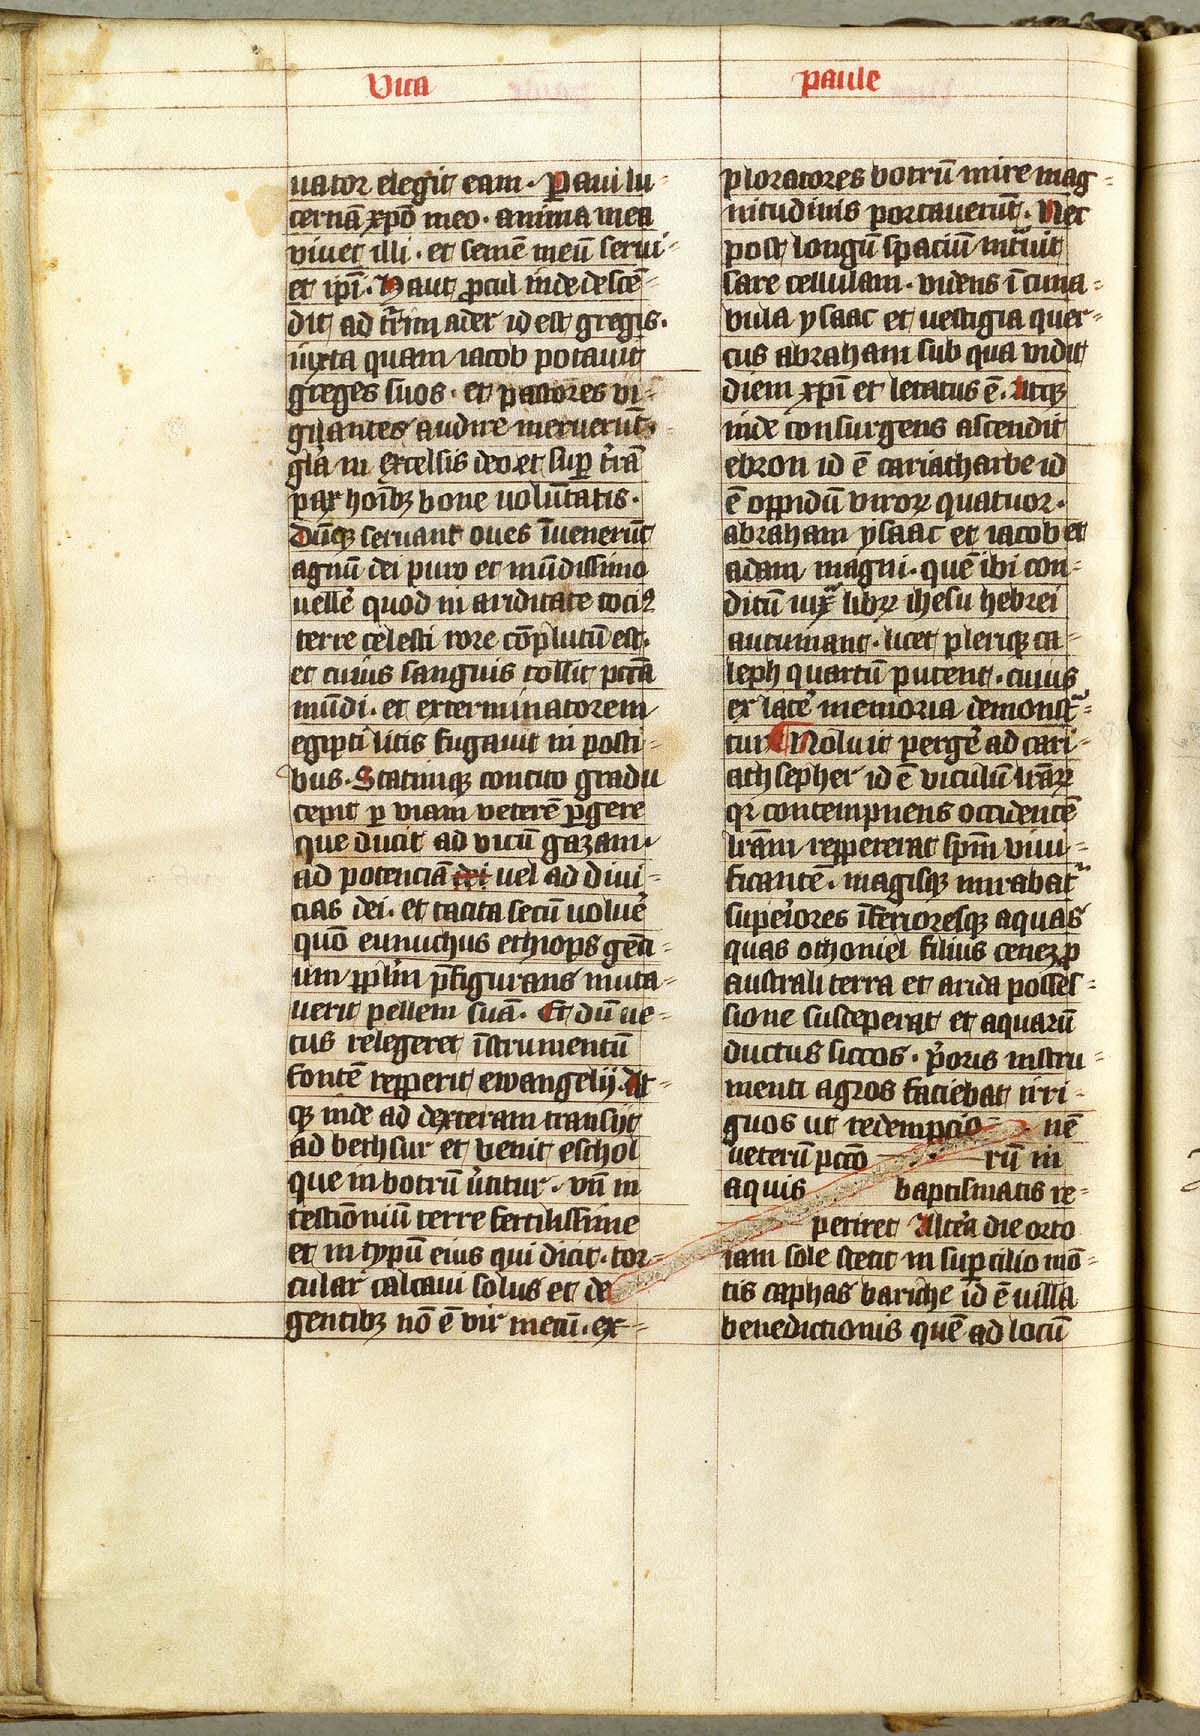 Vita
paule
uator elegit eam. Paui lu-
cernā xp̄o meo. anima mea
viuet illi. et semē meū serui-
et ip̄i. Haut ꝓcul inde descē-
dit ad t̄rim ader id est gregis.
iuxta quam iacob potauit
greges suos. et pastores vi-
gilantes audire meruerūt.
gl̄a in excelsis deo et suꝑ t̄rā
pax hoībꝫ bone uolūtatis.
Dūqꝫ seruant oues īuenerūt
agnū dei puro et mūdissimo
uelle᷑ quod in ariditate tociꝰ
terre celesti rore cōplutū est.
et cuius sanguis tollit pctā
mūdi. et exterminatorem
egipti litis fugauit in posti-
bus. Statimqꝫ concito gradu
cepit ꝑ viam veterē ꝑgere
que ducit ad vicū gazam.
ad potenciā dei uel ad diui-
cias dei. et tacita secū uolue᷑
quō eunuchus ethiops gēti-
um ꝓpl̄m p̄figurans muta-
uerit pellem suā. Et dū ue-
tus relegeret īstrumentū
fontē repperit ewangelij. At-
qꝫ inde ad dexteram transijt
ad bethsur et venit eschol
que in botrū u᷑titur. vn̄ in
testīoniū terre fertilissime
et in typū eius qui dicit. tor-
cular calcaui solus et de
gentibꝫ nō ē vir mecū. ex-
ploratores botrū mire mag-
nitudinis portauerūt. Nec
post longū spaciū int᷑uit
sare cellulam. videns ī cuna-
bula ysaac et uestigia quer-
cus abraham sub qua vidit
diem xp̄i et letatus ē. Atqꝫ
inde consurgens ascendit
ebron id ē cariatharbe id
ē oppidū viroꝝ quatuor.
abraham ysaac et iacob et
adam magni. quē ibi con-
ditū iuxᵃ libꝝ ihesu hebrei
autumant. licet pleriqꝫ ca-
leph quartū putent. cuius
ex late᷑ memoria demonstᵃ-
tur Noluit perge᷑ ad cari-
athsepher id ē viculū lr̄aꝝ
qꝛ contempnens occidentē
lr̄am reppererat sp̄m viui-
ficantē. magisqꝫ mirabat᷑
supe᷑iores īferioresqꝫ aquas
quas othoniel filius cenez ꝓ
australi terra et arida posses-
sione susceperat et aquarū
ductus siccos. p᷑oris instru-
menti agros faciebat irri-
guos ut redempcio nē
veterū pctō rū in
aquis baptismatis re-
periret Alte᷑a die orto
iam sole stetit in suꝑcilio mō-
tis caphas bariche id ē uilla
benedictionis quē ad locū